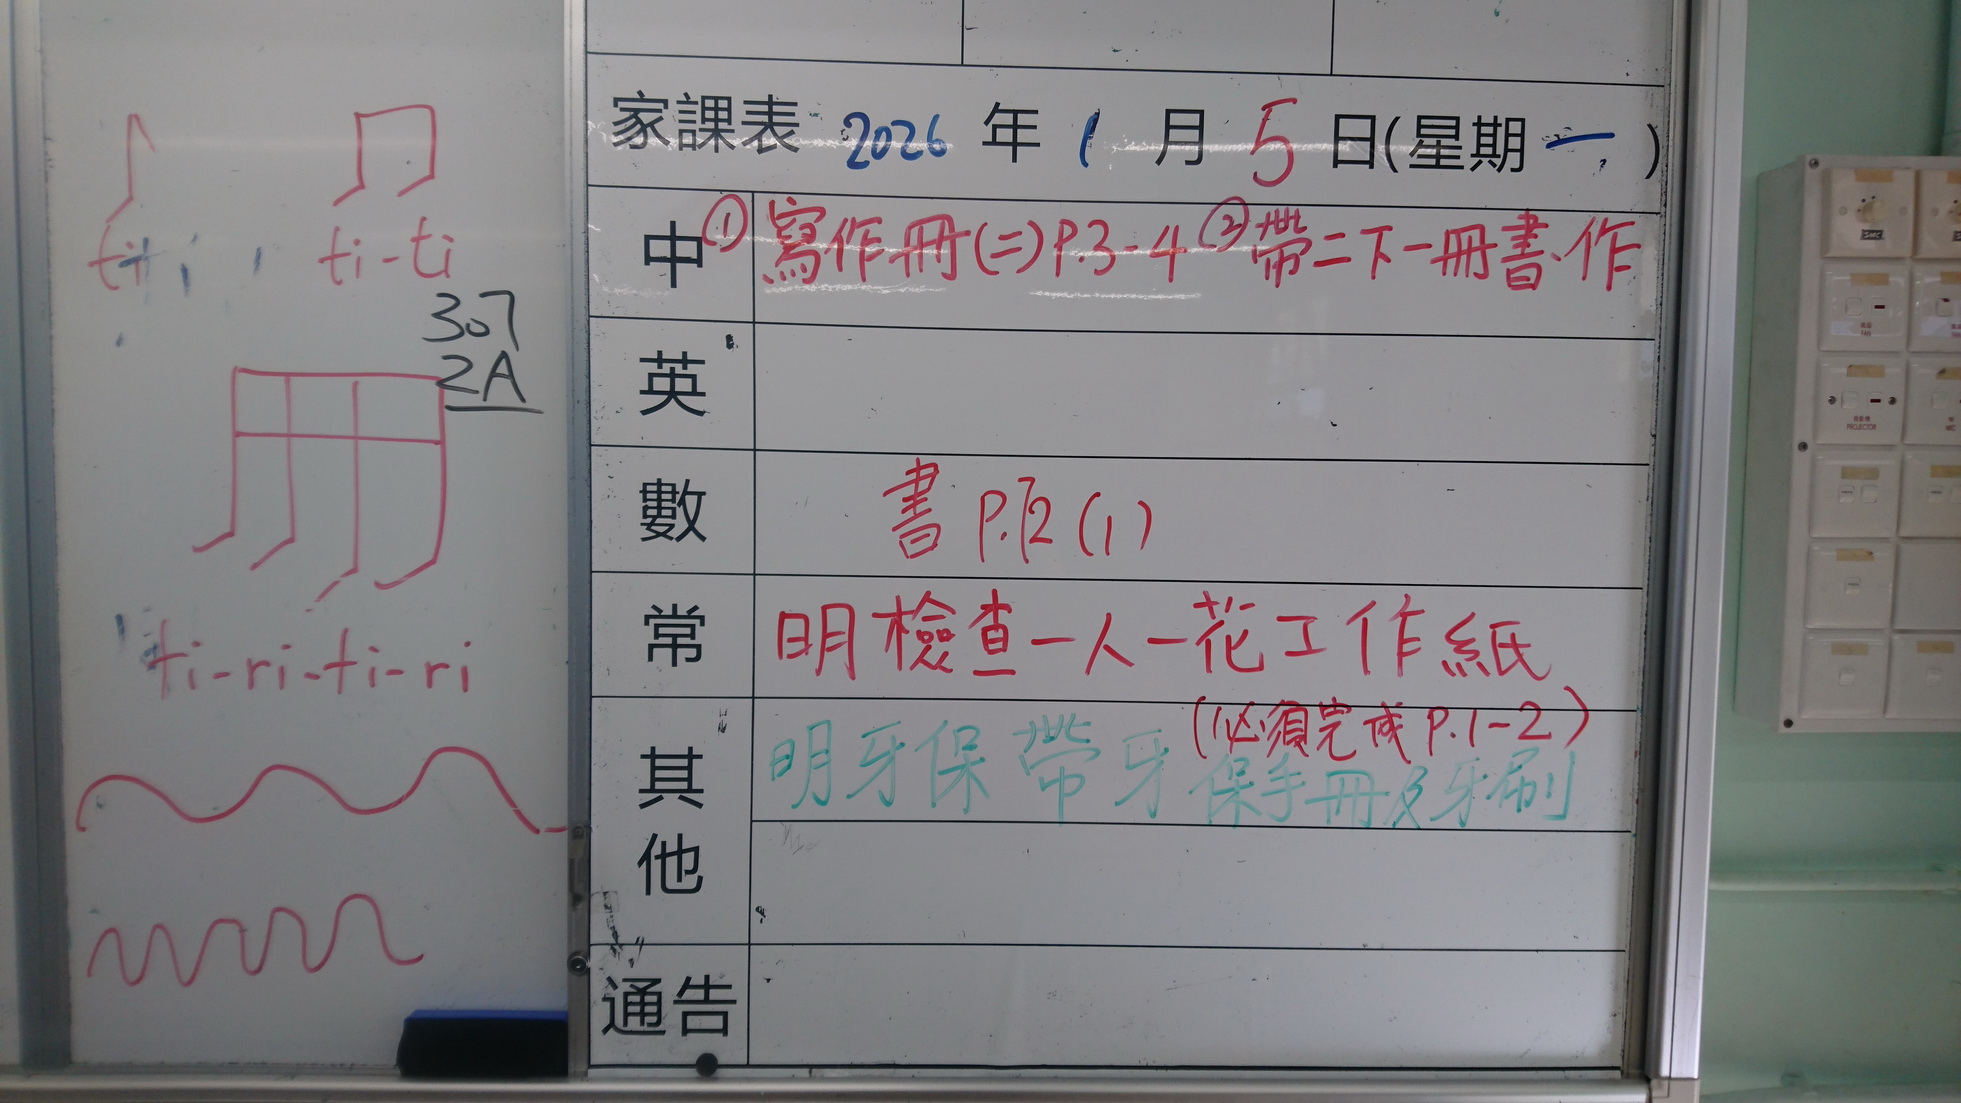 ti
ti-ti
307
2A
ti-ri-ti-ri
家課表 2026 年 1 月 5 日(星期一)
中 ①寫作冊(二)P.3-4 ②帶二下一冊書.作
英
數 書 P.12(1)
常 明檢查一人一花工作紙
(必須完成 P.1-2)
其他 明牙保帶牙保手冊及牙刷
通告
PROJECTOR